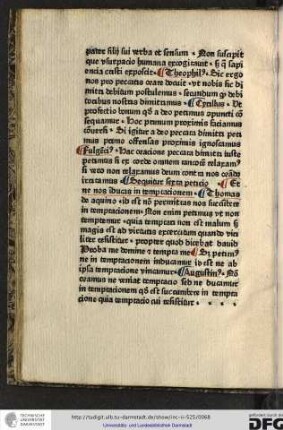 pater filij sui verba et sensum · Non suscipit
que vsurpacio humana excogitauit · s q̄ sapi
encia cristi exposuit · Theophilꝰ · Sic ergo
non pro peccatis oram docuit · vt nobis sic di
mitti debitum postulemus · secundum ꝙ debi
toribus nostris dimittimus · Cyrillus · Vt
profectio bonum a deo petimus
sequamur · Hoc primum proximis faciamus
Si igitur a deo peccata dimitti peti
mus primo offensas proximis ignoscamus
Fulgēciꝰ · Hac oracione peccata dimitti iuste
petimus si ex corde omnem relaxamꝰ
si vero non relaxamus deum contra nos
irritamus · Sequitur sexta peticio · Et
ne nos inducas in temptacionem · Thomas
de aquino · id est nō permittas nos succūbere
in temptacionem · Non enim petimus vt non
temptemur · quia temptari non est malum sʒ
magis est ad virtutis exercicium quando viri
liter resistitur · propter quod dicebat dauid
Proba me domine et tempta me · Si petimꝰ
ne in temptacionem inducamur id est ne ab
ipsa temptacione vincamur · Augustinꝰ · Nō
oramus ne veniat temptacio sed ne ducamur
in temptacionem qd̄ est succumbere in tempta
cione quia temptacio cui resistitur · · · ·
TECHNISCHE
UNIVERSITÄT
DARMSTADT
http://tudigit.ulb.tu-darmstadt.de/show/inc-ii-525/0068
Universitäts- und Landesbibliothek Darmstadt
gefördert durch die
DFG